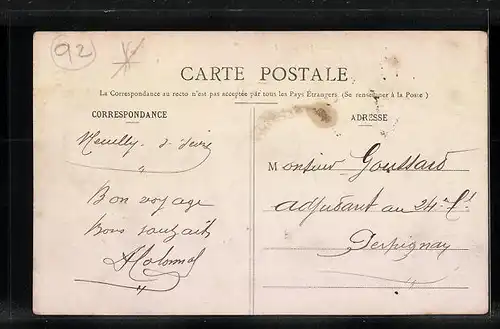 92
CARTE POSTALE
La Correspondance au recto n'est pas acceptée par tous les Pays Étrangers. (Se renseigner à la Poste)
CORRESPONDANCE
ADRESSE
Neuilly
Bon voyage
bons souhaits
Monsieur Goussard
adjudant au 24e
Perpignan